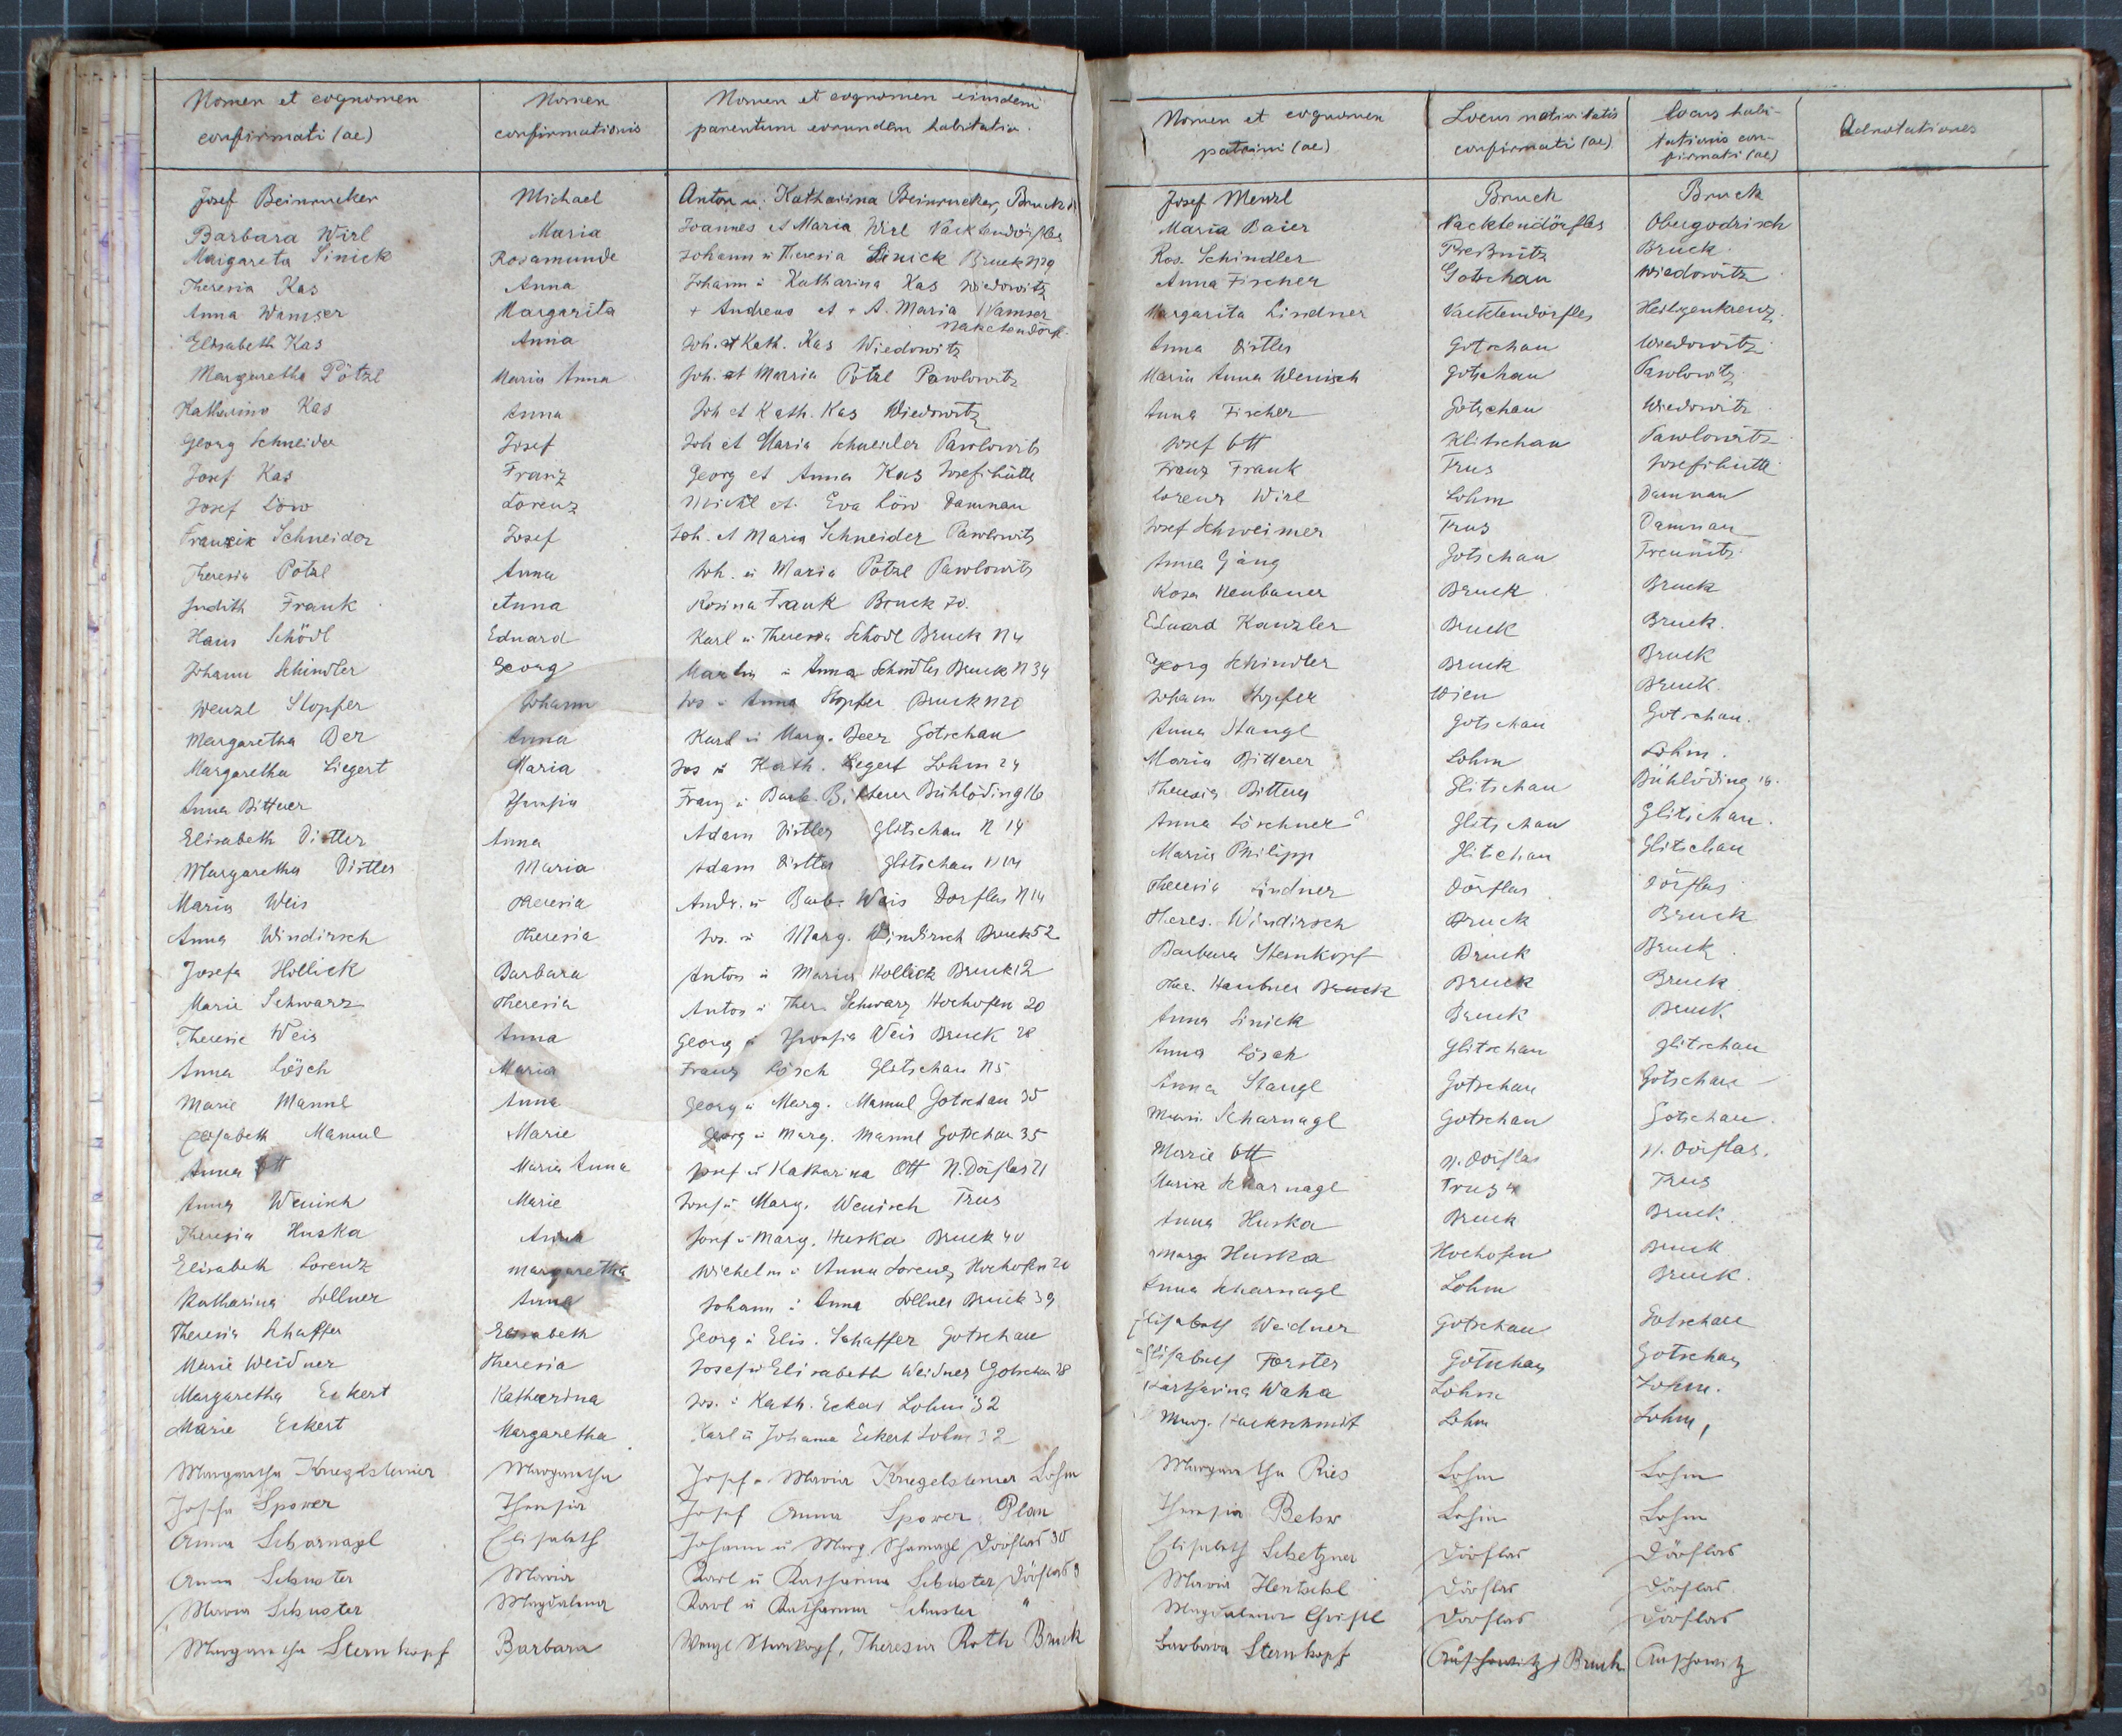 Nomen et cognomen confirmati (ae)
Nomen confirmationis
Nomen et cognomen eiusdem parentum eorundem habitatio.
Josef Beinrucker Michael Anton u. Katharina Beinrucker, Bruck
Barbara Wirl Maria Joannes et Maria Wirl Nacktendörflas
Margareta Sinick Rosamunde Johann u Theresia Sinick Bruck N29
Theresia Kas Anna Johann u Katharina Kas Wiedowitz
Anna Wamser Margarita + Andreas et + A. Maria Wamser
Naketendörfl.
Elisabeth Kas Anna Joh. et Kath. Kas Wiedowitz
Margaretha Pötzl Maria Anna Joh. et Maria Pötzl Pawlowitz
Katharina Kas Anna Joh et Kath. Kas Wiedowitz
Georg Schneider Josef Joh et Maria Schneider Pawlowitz
Josef Kas Franz Georg et Anna Kas Josefihütte
Josef Löw Lorenz Michl et. Eva Löw Damnau
Schneider Josef Joh. et Maria Schneider Pawlowitz
Theresia Pötzl Anna Joh. u Maria Pötzl Pawlowitz
Judith Frank Anna Rosina Frank Bruck 70.
Hans Schödl Eduard Karl u Theresia Schödl Bruck N4
Johann Schindler Georg Martin u Anna Schindler Bruck N34
Wenzl Stopfer Johann Jos u Anna Stopfer Bruck N20
Margaretha Ber Anna Karl u Marg. Beer Gotschau
Margaretha Liegert Maria Jos u Kath. Liegert Lohm 24
Anna Bitterer Theresia Franz u Barb. Bitterer Bühlöding 16
Elisabeth Distler Anna Adam Distler Glitschau N 14
Margaretha Distler Maria Adam Distler Glitschau N14
Maria Weis Theresia Andr. u Barb. Weis Dorflas N14
Anna Windirsch Theresia Jos. u Marg. Windirsch Bruck 52
Josefa Hollick Barbara Anton u Maria Hollick Bruck 12
Marie Schwarz Theresia Anton u Ther. Schwarz Hochofen 20
Theresie Weis Anna Georg u Theresia Weis Bruck 28
Anna Lösch Maria Franz Lösch Glitschau N5
Marie Mannl Anna Georg u Marg. Mannl Gotschau 35
Elisabeth Mannl Marie Georg u Marg. Mannl Gotschau 35
Anna Ott Maria Anna Josef u Katharina Ott N. Dörflas 21
Anna Wenisch Marie Josef u Marg. Wenisch Trus
Theresia Huska Anna Josef u Marg. Huska Bruck 40
Elisabeth Lorenz Margaretha Wilhelm u Anna Lorenz Hochofen 20
Katharina Lollner Anna Johann u Anna Lollner Bruck 39
Theresia Schaffer Elisabeth Georg u Elis. Schaffer Gotschau
Marie Weidner Theresia Josef u Elisabeth Weidner Gotschau 28
Margaretha Eckert Katharina Jos. u Kath. Eckert Lohm 32
Marie Eckert Margaretha Karl u Johanna Eckert Lohm 32
Margaretha Kneglsteiner Margaretha Josef u Maria Kneglsteiner Lohm
Josefa Sporer Theresia Josef Anna Sporer Plan
Anna Scharnagl Elisabeth Johann u Marg Scharnagl Dörflas 30
Anna Schuster Maria Karl u Katharina Schuster Dörflas 9
Maria Schuster Magdalena Karl u Katharina Schuster "
Margaretha Sternkopf Barbara Wenzl Sternkopf, Theresia Roth Bruck
Nomen et cognomen patrini (ae)
Locus nativitatis confirmati (ae)
locus habitationis confirmati (ae)
Adnotationes
Josef Menzl Bruck Bruck
Maria Baier Nacktendörflas Obergodrisch
Ros. Schindler Preßnitz Bruck
Anna Fischer Gotschau Wiedowitz
Margarita Lindner Nacktendörfles Heiligenkreuz.
Anna Distler Gotschau Wiedowitz
Maria Anna Wenisch Gotschau Pawlowitz
Anna Fischer Gotschau Wiedowitz
Josef Ott Klitschau Pawlowitz
Franz Frank Trus Josefihütte
Lorenz Wirl Lohm Damnau
Josef Schweimer Trus Damnau
Anna Gäng Gotschau
Rosa Neubauer Bruck Bruck
Eduard Kanzler Bruck Bruck.
Georg Schindler Bruck Bruck
Johann Stopfer Wien Bruck.
Anna Stangl Gotschau Gotschau.
Maria Bitterer Lohm Lohm.
Theresia Bitterer Glitschau Bühlöding 16.
Anna Löschner Glitschau Glitschau.
Maria Philipp Glitschau Glitschau
Theresia Lindner Dörflas Dörflas
Theres. Windirsch Bruck Bruck
Barbara Sternkopf Bruck Bruck.
Ther. Haubner Bruck Bruck Bruck.
Anna Sinick Bruck Bruck
Anna Lösch Glitschau Glitschau
Anna Stangl Gotschau Gotschau
Marie Scharnagl Gotschau Gotschau.
Marie Ott N. Dörflas N. Dörflas.
Maria Scharnagl Trus Trus
Anna Huska Bruck Bruck.
Marg. Huska Hochofen Bruck
Anna Scharnagl Lohm Bruck.
Elisabeth Weidner Gotschau Gotschau
Elisabeth Forster Gotschau Gotschau
Katharina Waha Lohm Lohm.
Marg. Hackschmidt Lohm Lohm,
Margaretha Ries Lohm Lohm
Theresia Lohm Lohm
Elisabeth Schetzner Dörflas Dörflas
Maria Hentschl Dörflas Dörflas.
Magdalena Dörflas Dörflas
Barbara Sternkopf (Auschowitz) Bruck Auschowitz
30